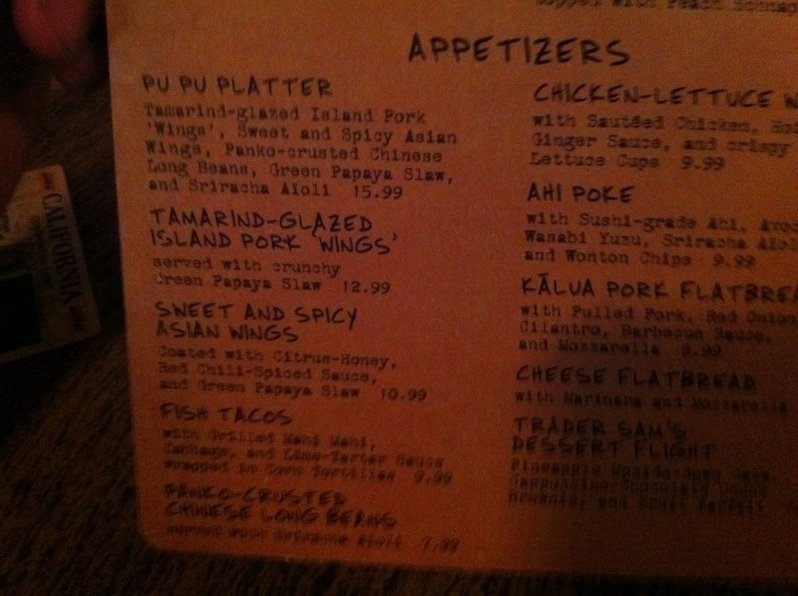 APPETIZERS
PU PU PLATTER
Tamarind-glazed Island Pork
'Wings', Sweet and Spicy Asian
Wings, Panko-crusted Chinese
Long Beans, Green Papaya Slaw,
and Sriracha Aïoli 15.99
TAMARIND-GLAZED
ISLAND PORK 'WINGS'
served with crunchy
Green Papaya Slaw 12.99
SWEET AND SPICY
ASIAN WINGS
Coated with Citrus-Honey,
Red Chili-Spiced Sauce,
and Green Papaya Slaw 10.99
FISH TACOS
with Grilled Mahi Mahi,
Cabbage, and Lime-Tartar Sauce
wrapped in Corn Tortillas 9.99
PANKO-CRUSTED
CHINESE LONG BEANS
served with Sriracha Aïoli
CHICKEN-LETTUCE
with Sautéed Chicken,
Ginger Sauce, and crispy
Lettuce Cups 9.99
AHI POKE
with Sushi-grade Ahi,
Wasabi Yuzu, Sriracha
and Wonton Chips 9.99
KĀLUA PORK
with Pulled Pork, Red
Cilantro, Barbecue Sauce,
and Mozzarella
CHEESE FLATBREAD
with Marinara and Mozzarella
TRADER SAM'S
DESSERT FLIGHT
Pineapple Upside-down Cake,
CALIFORNIA